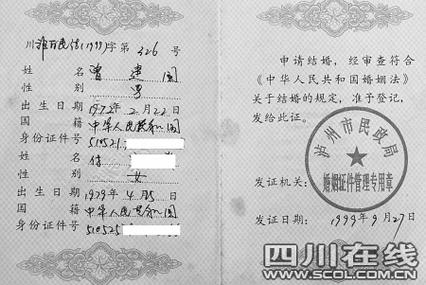 字第326号
姓名 曾建国
性别 男
出生日期 1972年2月22日
国籍 中华人民共和国
身份证件号 510521
姓名
性别 女
出生日期 1979年4月5日
国籍 中华人民共和国
身份证件号 510525
申请结婚,经审查符合
《中华人民共和国婚姻法》
关于结婚的规定,准予登记,
发给此证。
泸州市民政局
婚姻证件管理专用章
发证机关:
发证日期:1999年9月27日
四川在线
WWW.SCOL.COM.CN